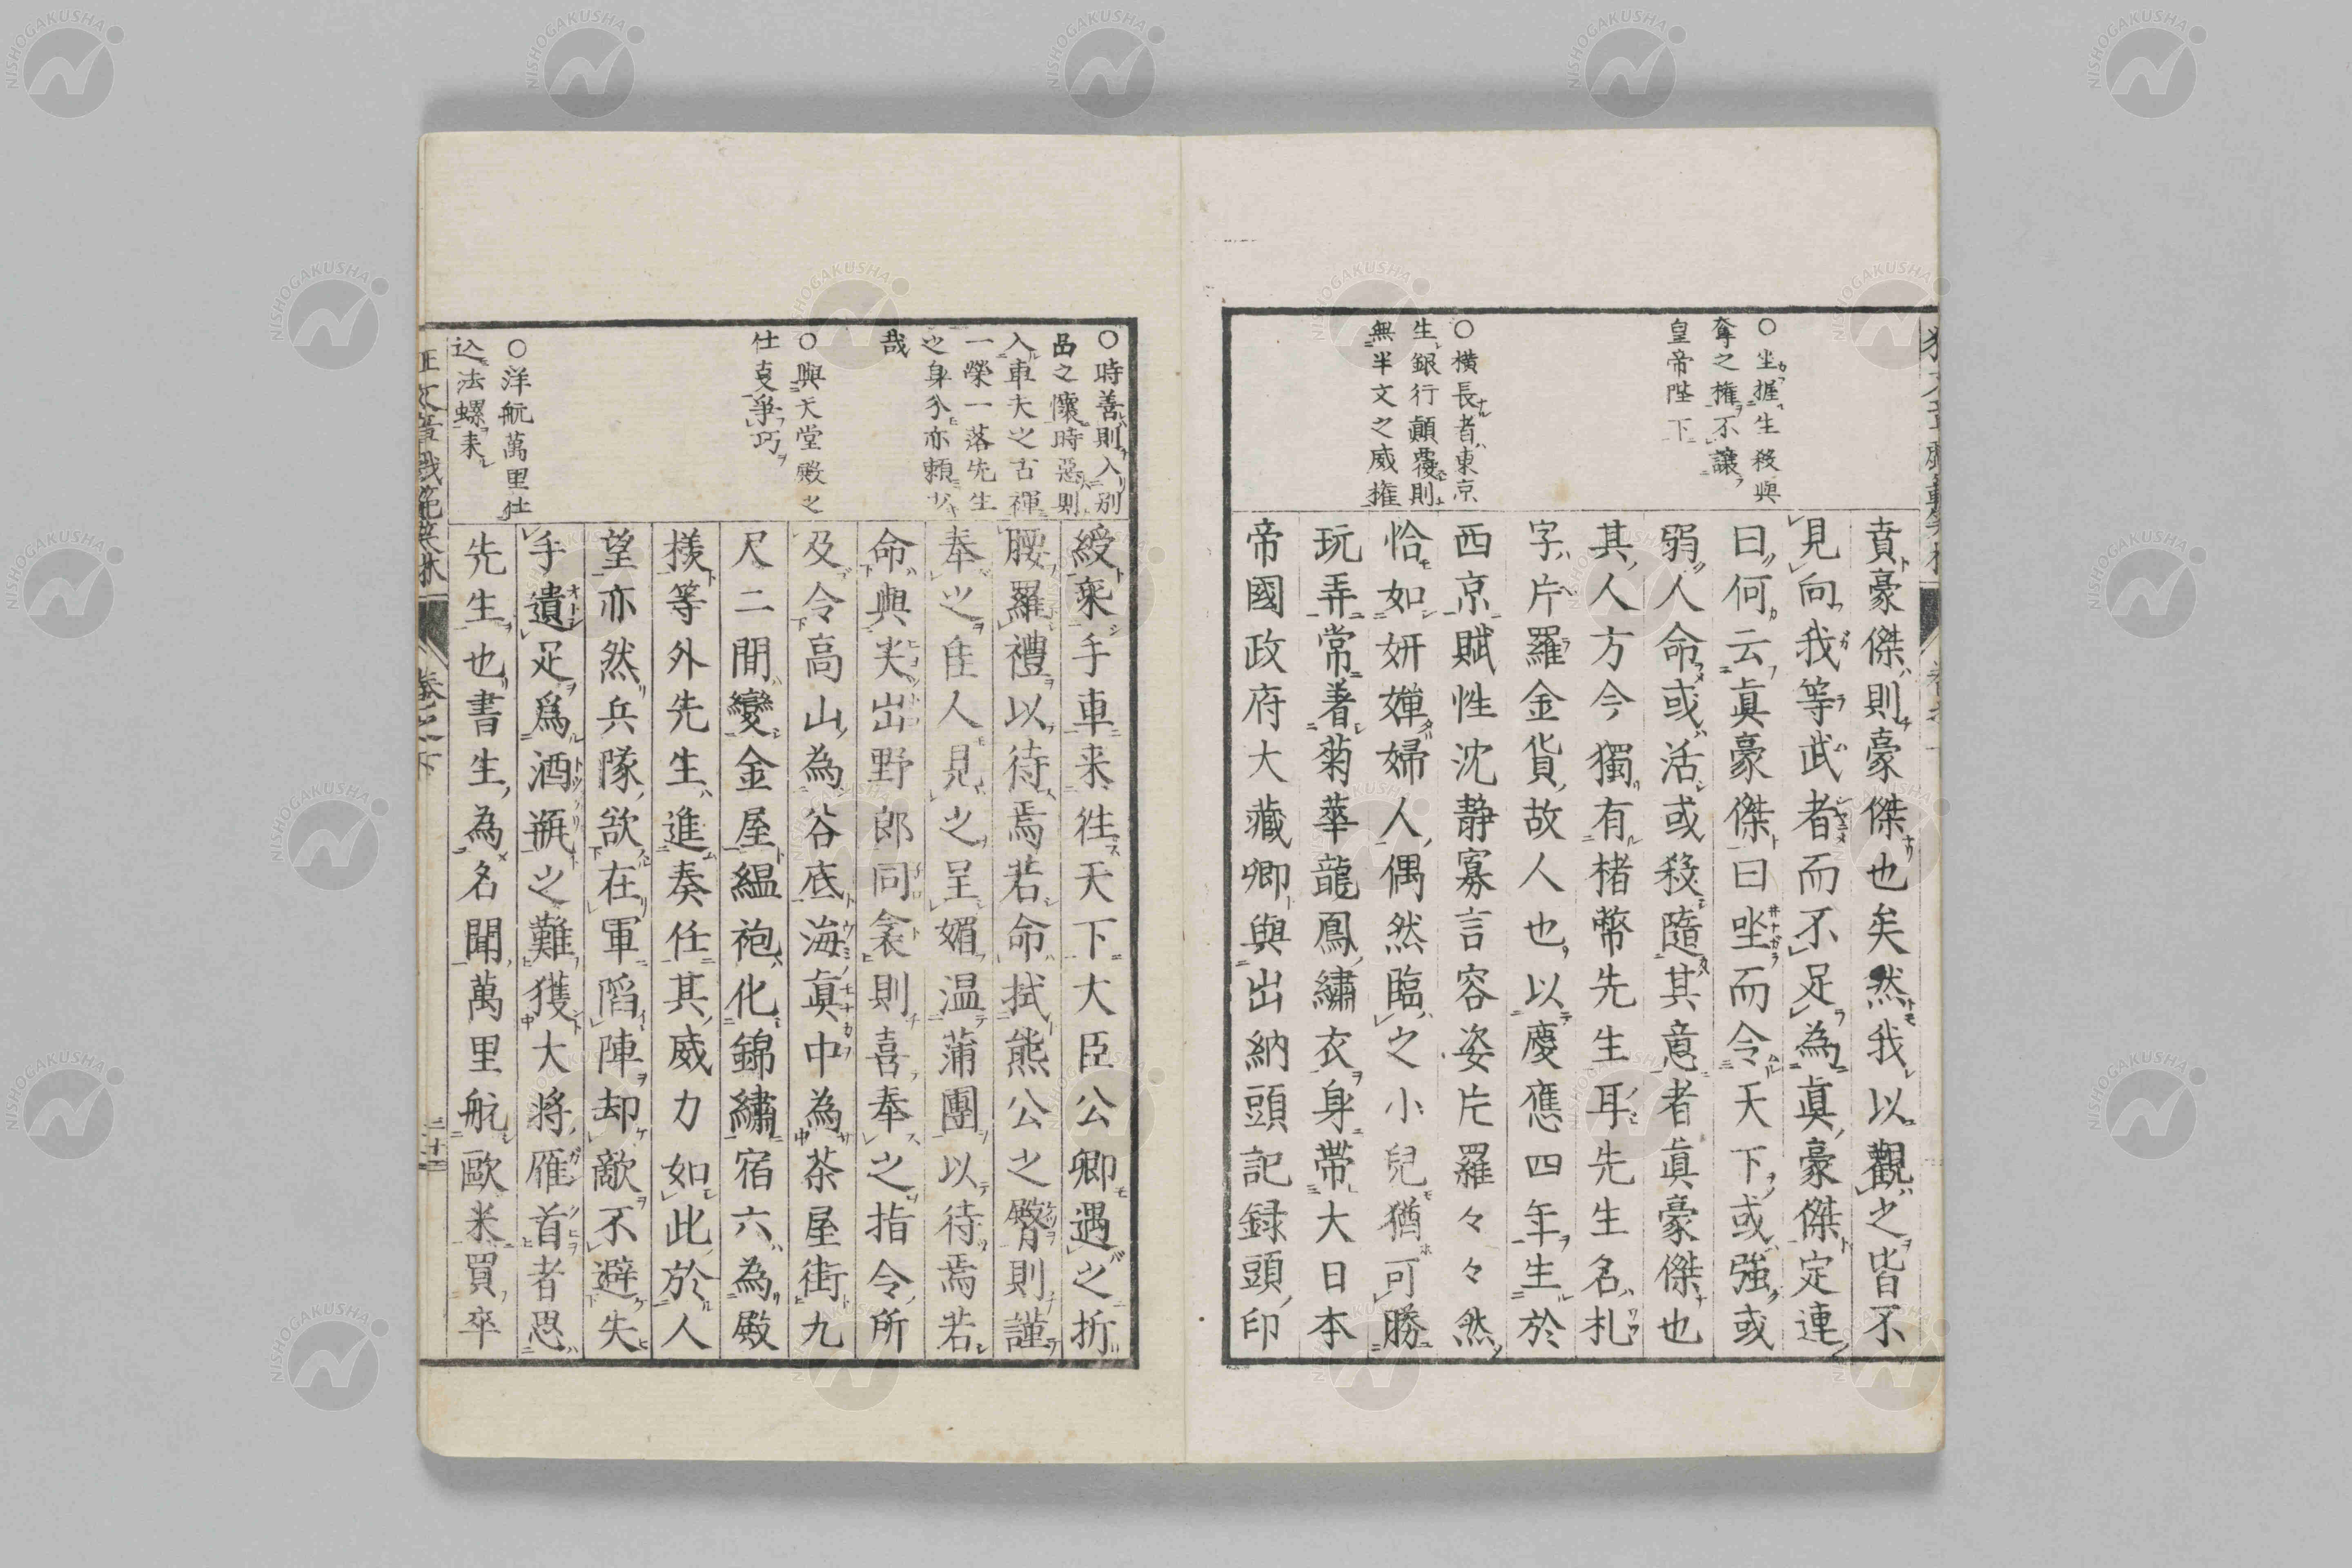 ○坐握生殺與
奪之權不讓
皇帝陛下
○橫長者東京
生銀行顛覆則
無半文之威權
賁豪傑則豪傑也矣然我以觀之皆不
見向我等武者而不足為眞豪傑定連
曰何云眞豪傑曰坐而令天下或強或
弱人命或活或殺隨其意者眞豪傑也
其人方今獨有楮幣先生耳先生名札
字片羅金貨故人也以慶應四年生於
西京賦性沈静寡言容姿片羅々々然
恰如妍嬋婦人偶然臨之小兒猶可勝
玩弄常著菊華龍鳳繡衣身帶大日本
帝國政府大藏卿與出納頭記録頭印
○時善則入別
品之懷時惡則
入車夫之古褌
一榮一落先生
之身分亦頼少
哉
○與天堂殿之
仕支爭巧
○洋航萬里仕
込法螺来
綬乗手車来徃天下大臣公卿遇之折
腰羅禮以待焉若命拭熊公之臀則謹
奉之佳人見之呈媚温蒲團以待焉若
命與突出野郎同衾則喜奉之指令所
及令高山為谷底海眞中為茶屋街九
尺二間變金屋緼袍化錦繡宿六為殿
様等外先生進奏任其威力如此於人
望亦然兵隊欲在軍䧟陣却敵不避失
手遺足爲酒瓶之難獲大将雁首者思
先生也書生為名聞萬里航歐米買卒
卷之下
二十三